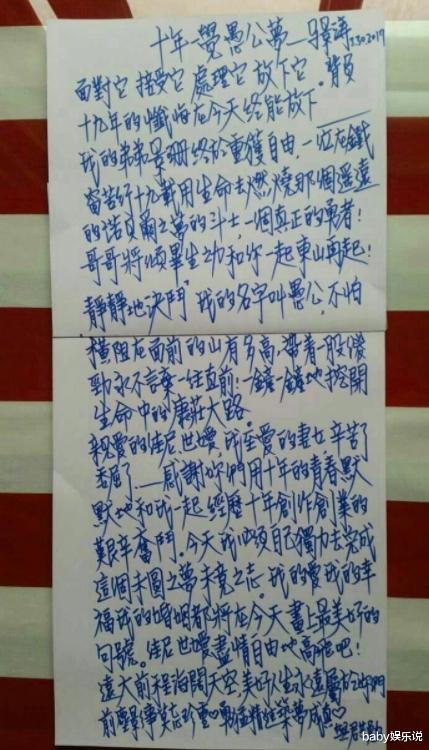 十年一覺愚公夢—馬景濤 230 2017
面對它 接受它 處理它 放下它. 背負
十九年的懺悔在今天終能放下
我的弟弟景珊終於重獲自由,一位在鐵
窗苦行十九載用生命去燃燒那個遙遠
的諾貝爾之夢的斗士,一個真正的勇者!
哥哥將傾畢生之力和你一起東山再起!
靜靜地決鬥,我的名字叫愚公,不怕
橫阻在面前的山有多高,帶着一股傻
勁永不言棄一往直前.一鏟一鏟地挖開
生命中的康莊大路.
親愛的佳尼.世嬡,我至愛的妻女,辛苦了
委屈了——感謝你們用十年的青春默
默地和我一起經歷十年創作創業的
艱辛奮鬥.今天我必須自己獨力去完成
這個未圓之夢未竟之志.我的愛我的幸
福我的婚姻都將在今天畫上最美好的
句號.佳尼世嬡盡情自由地高飛吧!
遠大前程海闊天空,美好人生永遠屬於妳們
前塵舊事莫忘珍重♡勇猛精進築夢成真♡
baby娱乐说